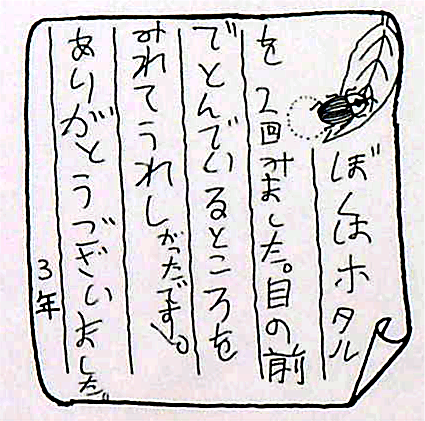 ぼくはホタル
を2回みました。目の前
でとんでいるところを
みれてうれしかったです。
ありがとうございました。
3年